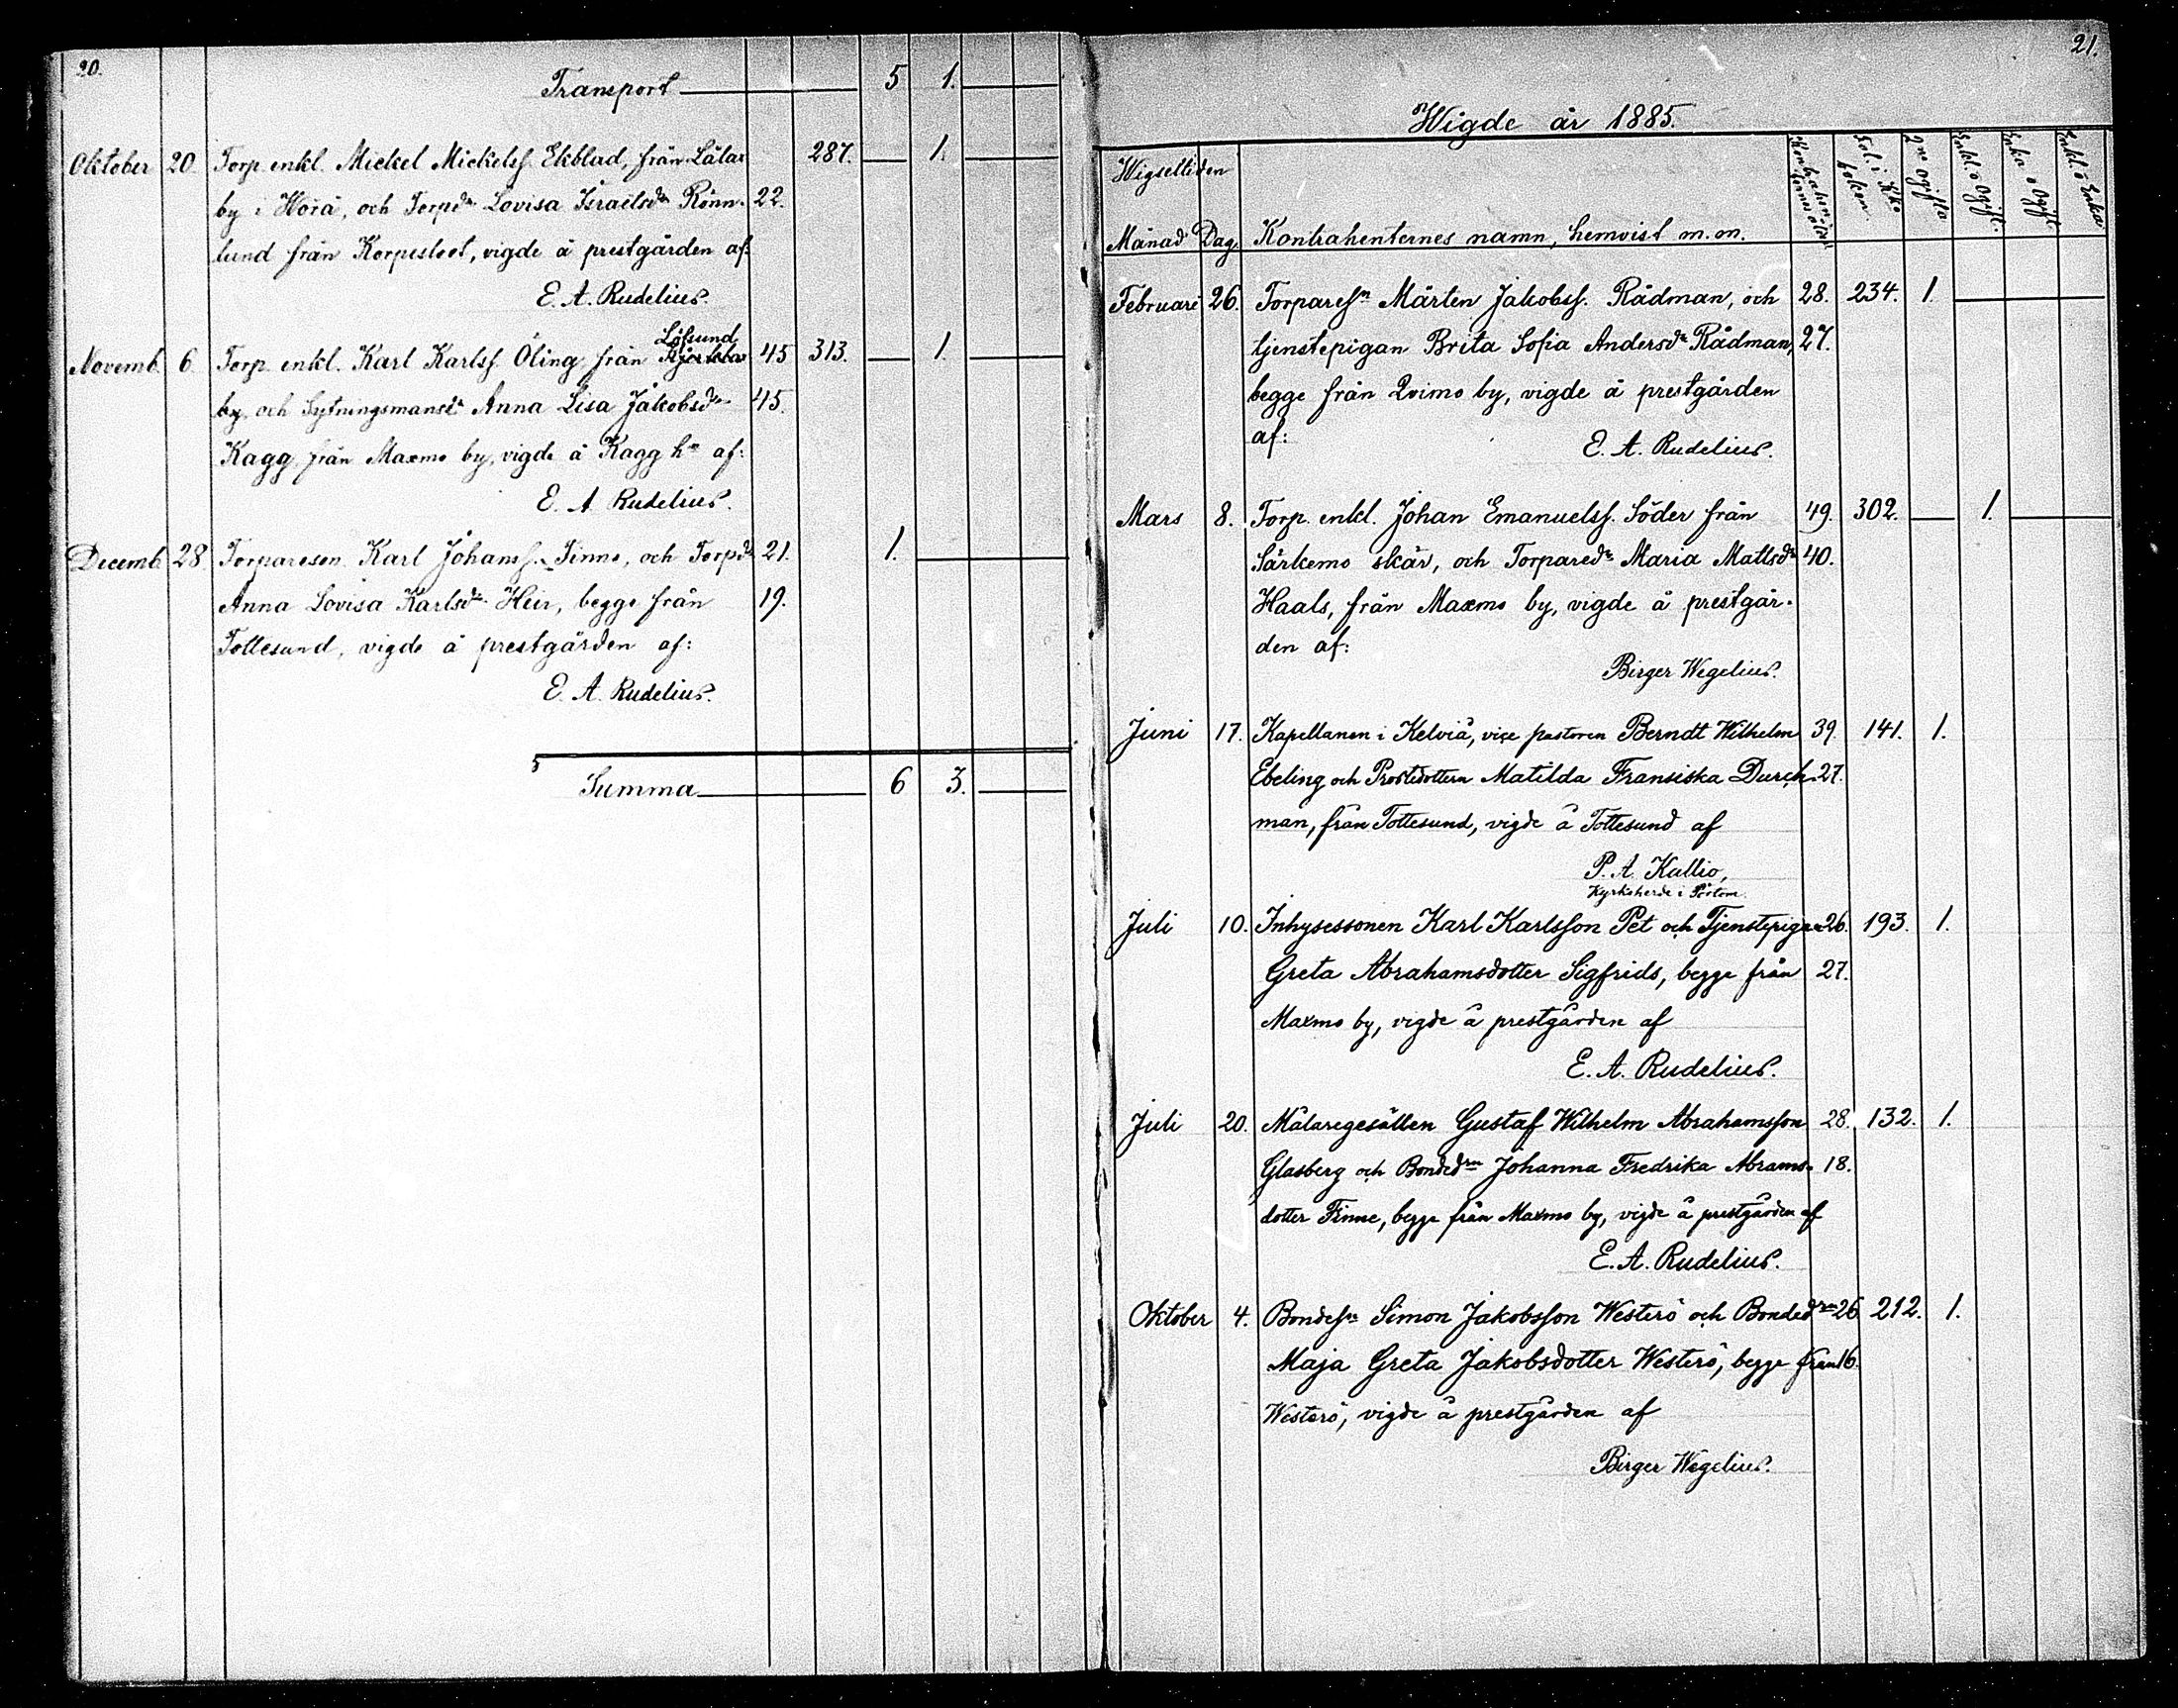 20.
Transport 5 1.
Oktober 20 Torp. enkl. Mickel Mickelss. Ekblad, från Lålax 287. 1.
by i Wörå, och Torpdr Lovisa Israelsdr Rönn- 22.
lund från Korpesleet, vigde å prestgården af:
E. A. Rudelius.
Löfsund
Novemb. 6 Torp. enkl. Karl Karlss. Öling från 45 313. 1.
by, och Sytningsmansdr Anna Lisa Jakobsdr 45.
Kagg från Maxmo by, vigde å Kagg hn af:
E. A. Rudelius.
Decemb. 28. Torparesen Karl Johanss. Finne, och Torpdr 21. 1.
Anna Lovisa Karlsdr Heir, begge från 19.
Tottesund, vigde å prestgården af:
E. A. Rudelius.
Summa 6 3.
21.
Wigde år 1885.
Wigseltiden
Månad Dag. Kontrahenternes namn, hemvist m.m. Kontrahenternes ålder Fol. i Kko boken 2ne ogifta Enkl. o Ogift. Enka o Ogift Enkl. o Enka
Februari 26. Torparesn Mårten Jakobss. Rådman, och 28. 234. 1.
tjenstepigan Brita Sofia Andersdr Rådman, 27.
begge från Qvimo by, vigde å prestgården
af:
E. A. Rudelius.
Mars 8. Torp. enkl. Johan Emanuelss. Söder från 49. 302. 1.
Särkemo skär, och Torparedr Maria Mattsdr 40.
Haals, från Maxmo by, vigde å prestgår-
den af:
Birger Wegelius.
Juni 17. Kapellanen i Kelviå, vice pastoren Berndt Wilhelm 39. 141. 1.
Ebeling och Prostdottern Matilda Fransiska Durch- 27.
man, från Tottesund, vigde å Tottesund af
P. A. Kallio,
Kyrkoherde i Pörtom.
Juli 10. Inhysessonen Karl Karlsson Pet och Tjenstepigan 26. 193. 1.
Greta Abrahamsdotter Sigfrids, begge från 27.
Maxmo by, vigde å prestgården af
E. A. Rudelius.
Juli 20. Målaregesällen Gustaf Wilhelm Abrahamsson 28. 132. 1.
Glasberg och Bondedrn Johanna Fredrika Abrams- 18.
dotter Finne, begge från Maxmo by, vigde å prestgården af
E. A. Rudelius.
Oktober 4. Bondesn Simon Jakobsson Westerö och Bondedrn 26 212. 1.
Maja Greta Jakobsdotter Westerö, begge från 16.
Westerö, vigde å prestgården af
Birger Wegelius.